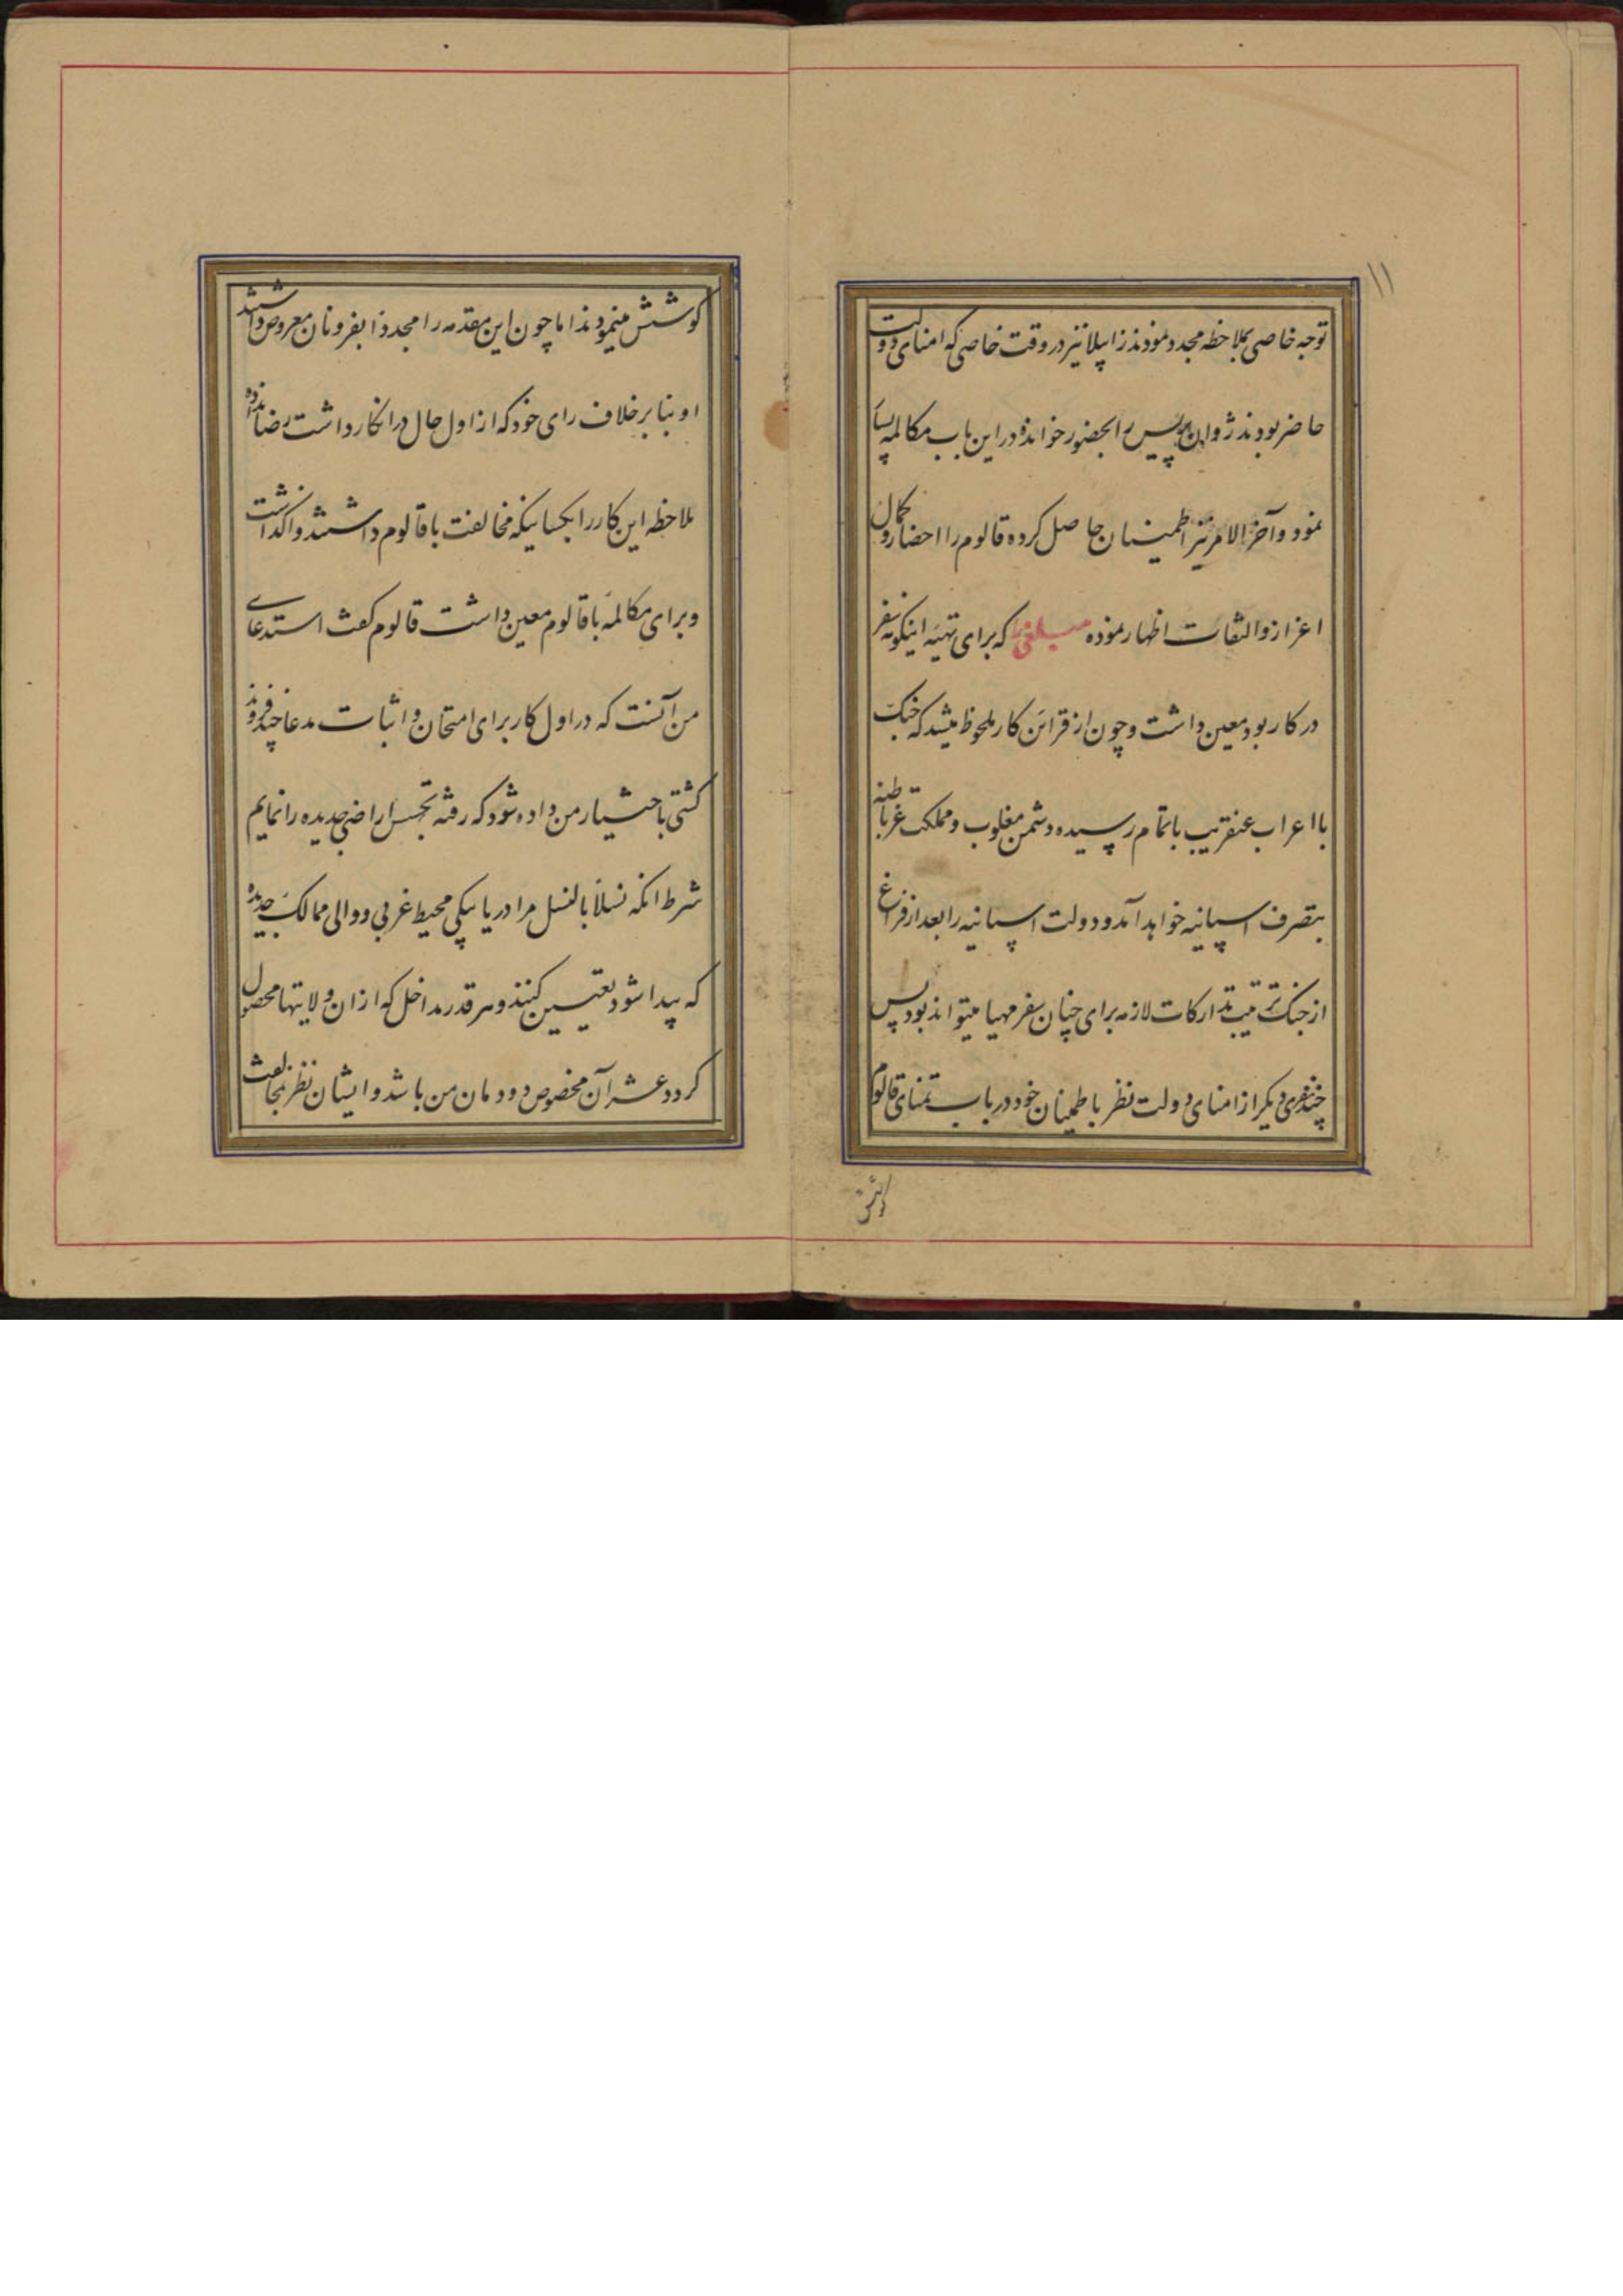 ۱۱
توجه خاصی بملاحظه مجدد نمودند زابیلا نیز در وقت خاصی که امنای دولت
حاضر بودند ژوان پریس را بحضور خوانده در این باب مکالمه بسیار
نمود و آخر الامر نیز اطمینان حاصل کرده قالوم را احضار و کمال
اعزاز و التفات اظهار نموده مبلغی را که برای تهیه اینکونه سفر
در کار بود معین داشت و چون از قرائن کار ملحوظ میشد که جنک
با اعراب عنقریب باتمام رسیده دشمن مغلوب و مملکت غرناطه
بتصرف اسپانیه خواهد آمد و دولت اسپانیه را بعد از فراغ
از جنک ترتیب تدارکات لازمه برای چنان سفر مهیا میتواند بود پس
چند نفری دیکر از امنای دولت نظر باطمینان خود در باب تمنای قالوم
کوشش مینمودند اما چون این مقدمه را مجددا بفرونان معروض داشتند
او بنا بر خلاف رای خود که از اول حال در انکار داشت رضا داده
ملاحظه این کار را بکسانیکه مخالفت با قالوم داشتند واکذاشت
و برای مکالمه با قالوم معین داشت قالوم کفت استدعای
من آنست که در اول کار برای امتحان و اثبات مدعا چند فروند
کشتی باختیار من داده شود که رفته تجسس اراضی جدیده را نمایم
شرط انکه نسلا بالنسل مرا دریابیکی محیط غربی و والی ممالک جدیده
که پیدا شود تعیین کنند و هر قدر مداخل که از ان ولایتها محصول
کردد عشر آن مخصوص دودمان من باشد و ایشان نظر بمخالفت